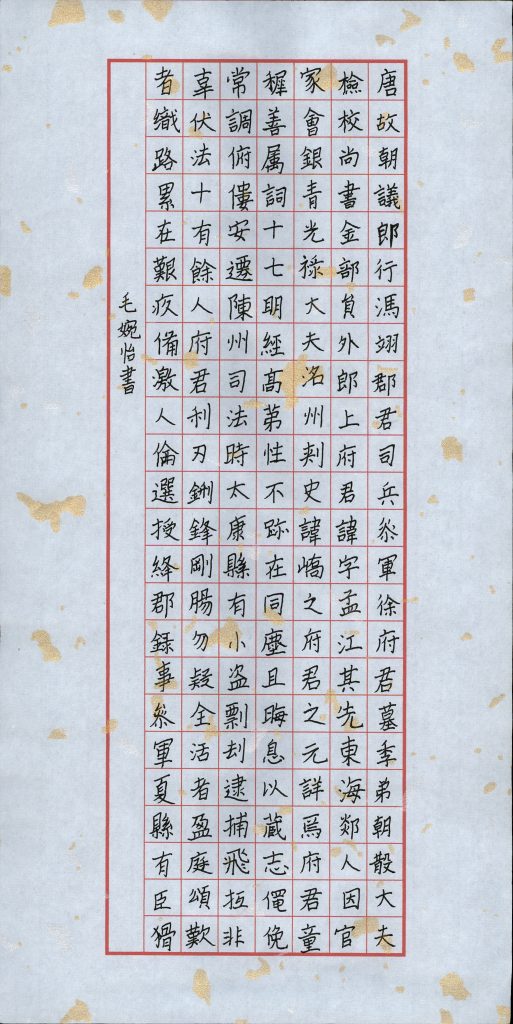 唐故朝議郎行馮翊郡君司兵叅軍徐府君墓季弟朝散大夫
檢校尚書金部負外郎上府君諱字孟江其先東海郯人因官
家會銀青光祿大夫洺州刾史諱嶠之府君之元詳焉府君童
穉善属詞十七明經高苐性不跡在同塵且晦息以蔵志僶俛
常調俯僂安遷陳州司法時太康縣有小盗剽刦逮捕飛抂非
辜伏法十有餘人府君利刃鉶鋒剛腸勿疑全活者盈庭頌歎
者織路累在艱疚備激人倫選授絳郡録事叅軍夏縣有臣猾
毛婉怡書